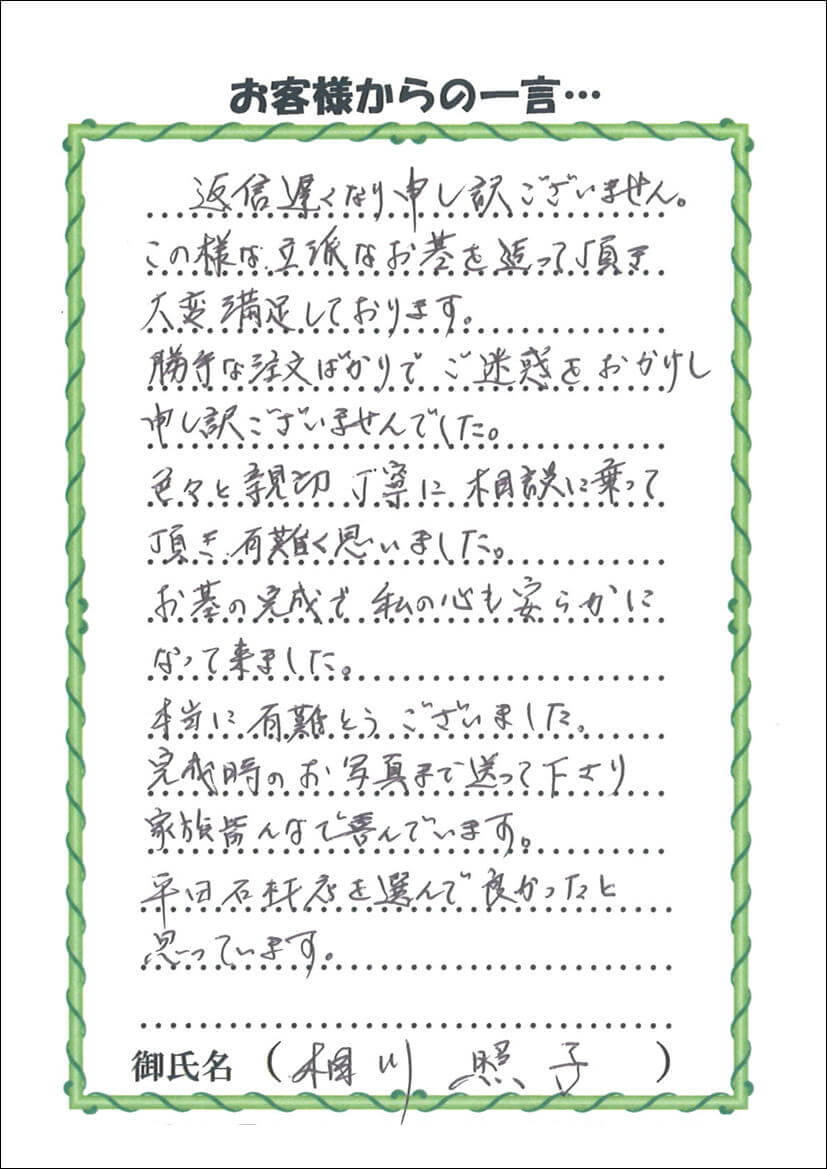 お客様からの一言…
返信遅くなり申し訳ございません。
この様な立派なお墓を造って頂き
大変満足しております。
勝手な注文ばかりでご迷惑をおかけし
申し訳ございませんでした。
色々と親切丁寧に相談に乗って
頂き有難く思いました。
お墓の完成で私の心も安らかに
なって来ました。
本当に有難とうございました。
完成時のお写真まで送って下さり
家族皆んなで喜んでいます。
平田石材店を選んで良かったと
思っています。
御氏名(相川照子)